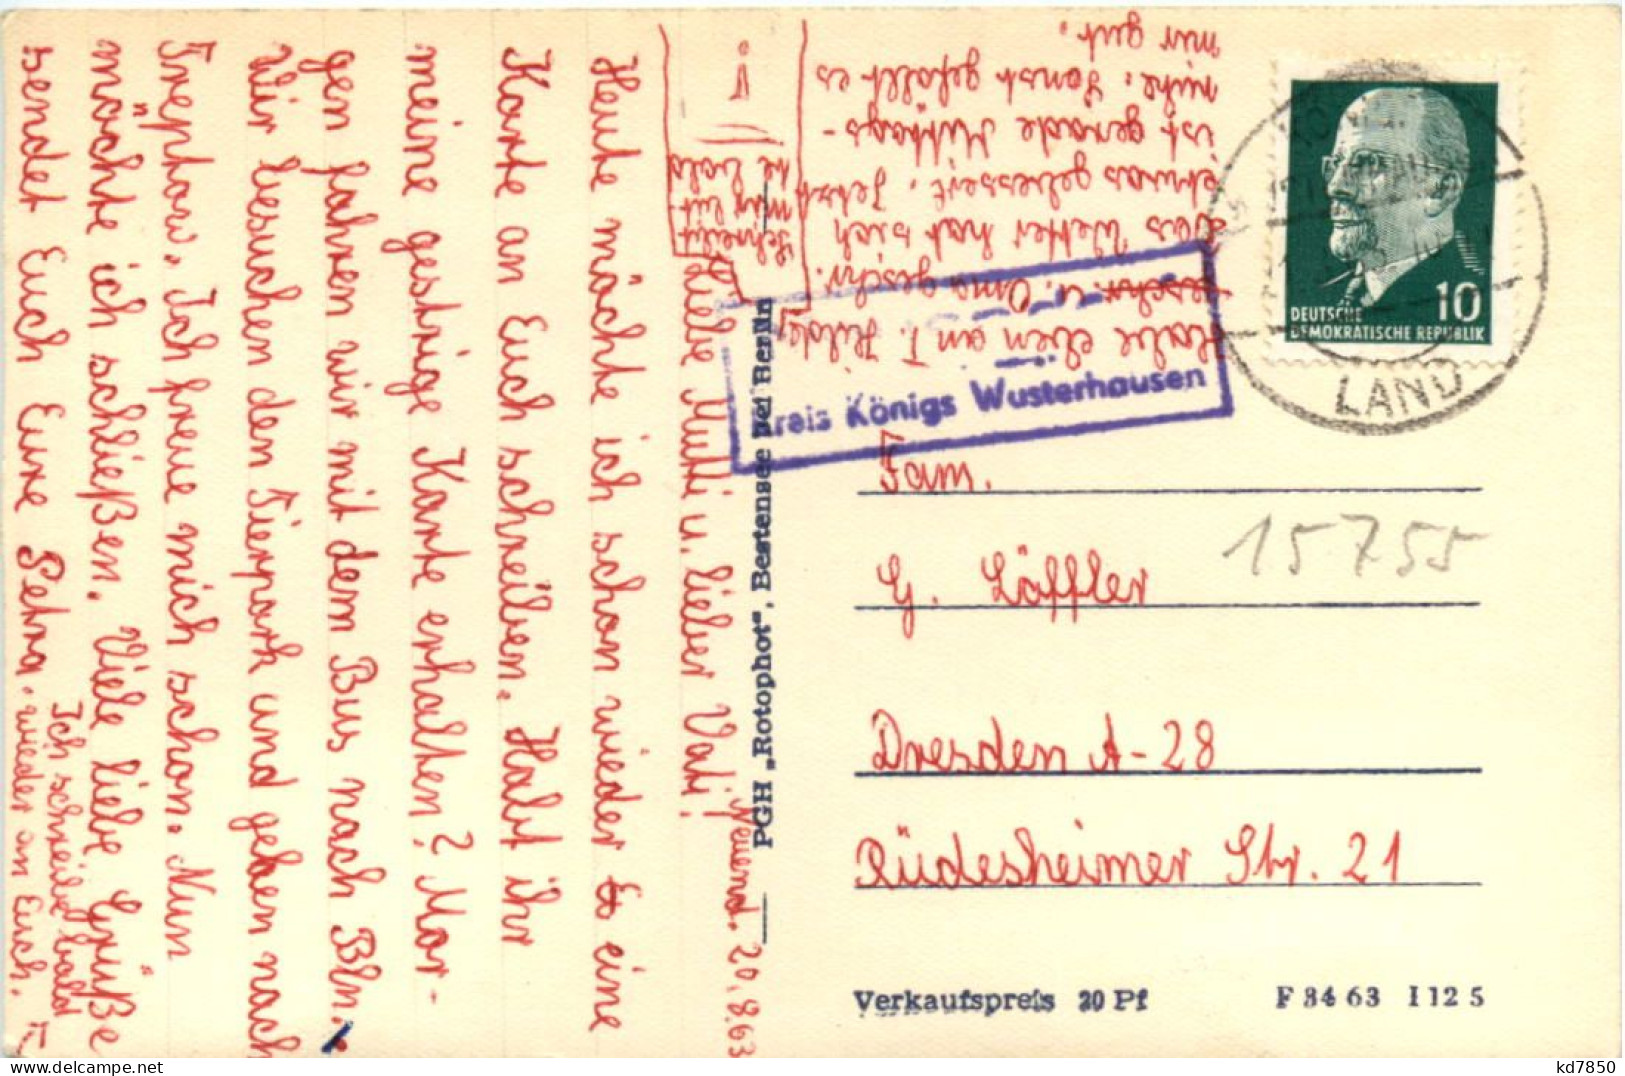 Neuend. 20.8.63
Liebe Mutti u. lieber Vati!
Heute möchte ich schon wieder eine
Karte an Euch schreiben. Habt ihr
meine gestrige Karte erhalten? Mor-
gen fahren wir mit dem Bus nach Bln.
Wir besuchen den Tierpark und gehen nach
Treptow. Ich freue mich schon. Nun
möchte ich schließen. Viele liebe Grüße
sendet Euch Eure Petra.
Ich schreibe bald
wieder an Euch.
Schreibt
mir bit
te bald
!
Habe eben an T. Hilde
geschr. u. Oma geschr.
Das Wetter hat sich
etwas gebessert. Jetzt
ist gerade Mittags-
ruhe. Sonst gefällt es
mir gut.
PGH „Rotophot“, Bestensee bei Berlin
Kreis Königs Wusterhausen
DEUTSCHE
DEMOKRATISCHE REPUBLIK
10
LAND
Fam.
15755
G. Löffler
Dresden A-28
Rüdesheimer Str. 21
Verkaufspreis 20 Pf
F 8463 I 12 5
kd7850